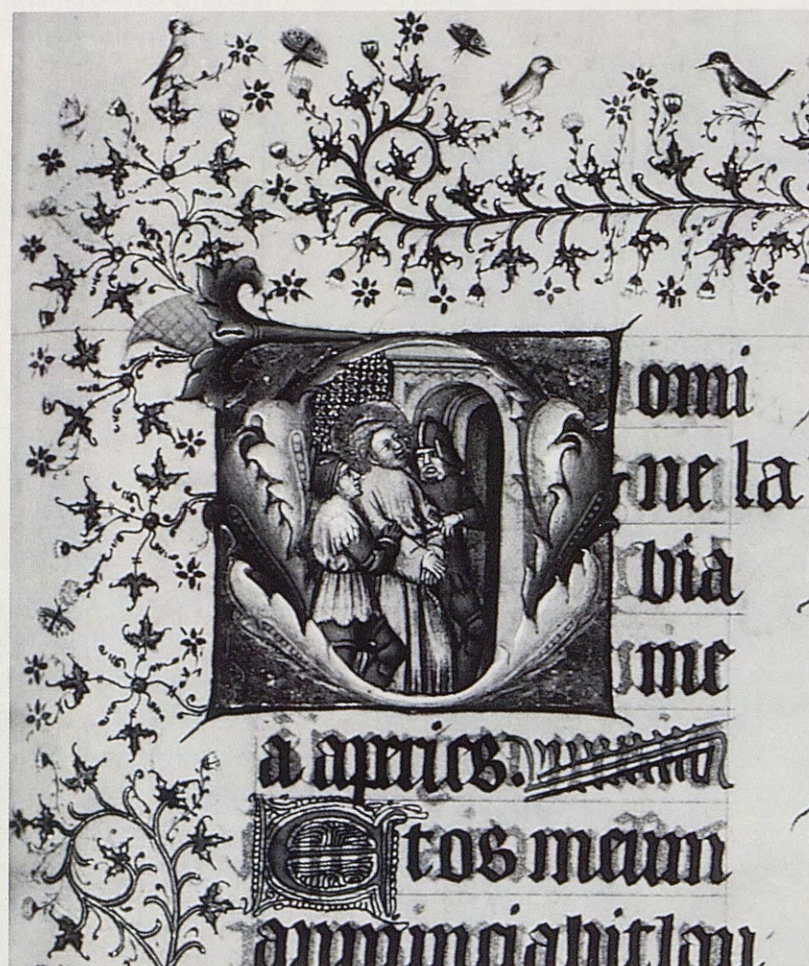 Domi
ne la
bia
me
a aperies.
Et os meum
annunciabit lau